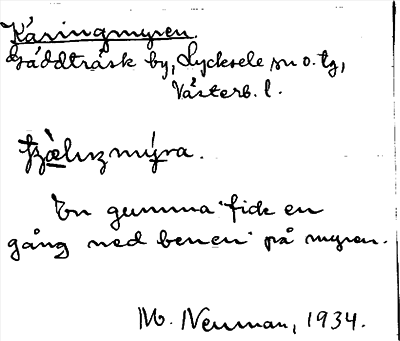 Käringmyren.
Gäddträsk by, Lycksele sn o. tg,
Västerb. l.
En gumma "fick en
gång ned benen" på myren.
M. Neuman, 1934.